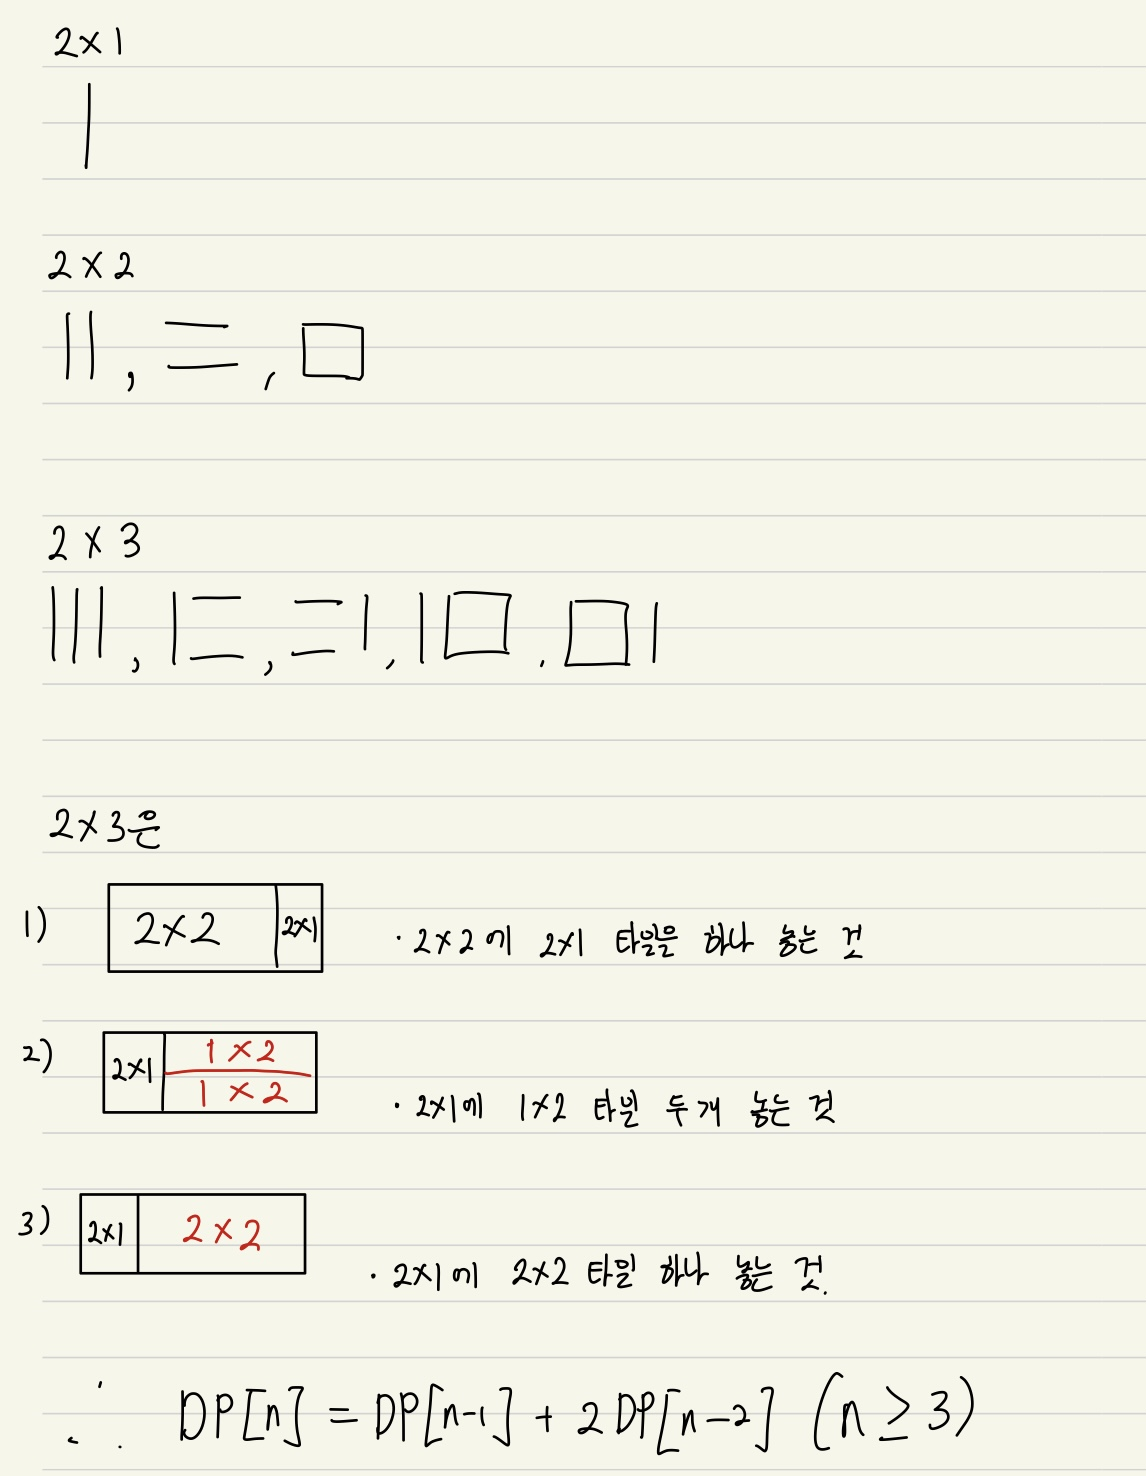 2×1
2×2
, ,
2×3
, , , .
2×3은
1) 2×2 2×1 · 2×2에 2×1 타일을 하나 놓는 것
2) 2×1 1×2 1×2 · 2×1에 1×2 타일 두개 놓는 것
3) 2×1 2×2 · 2×1에 2×2 타일 하나 놓는 것.
∴ DP[n] = DP[n-1] + 2DP[n-2] (n ≥ 3)